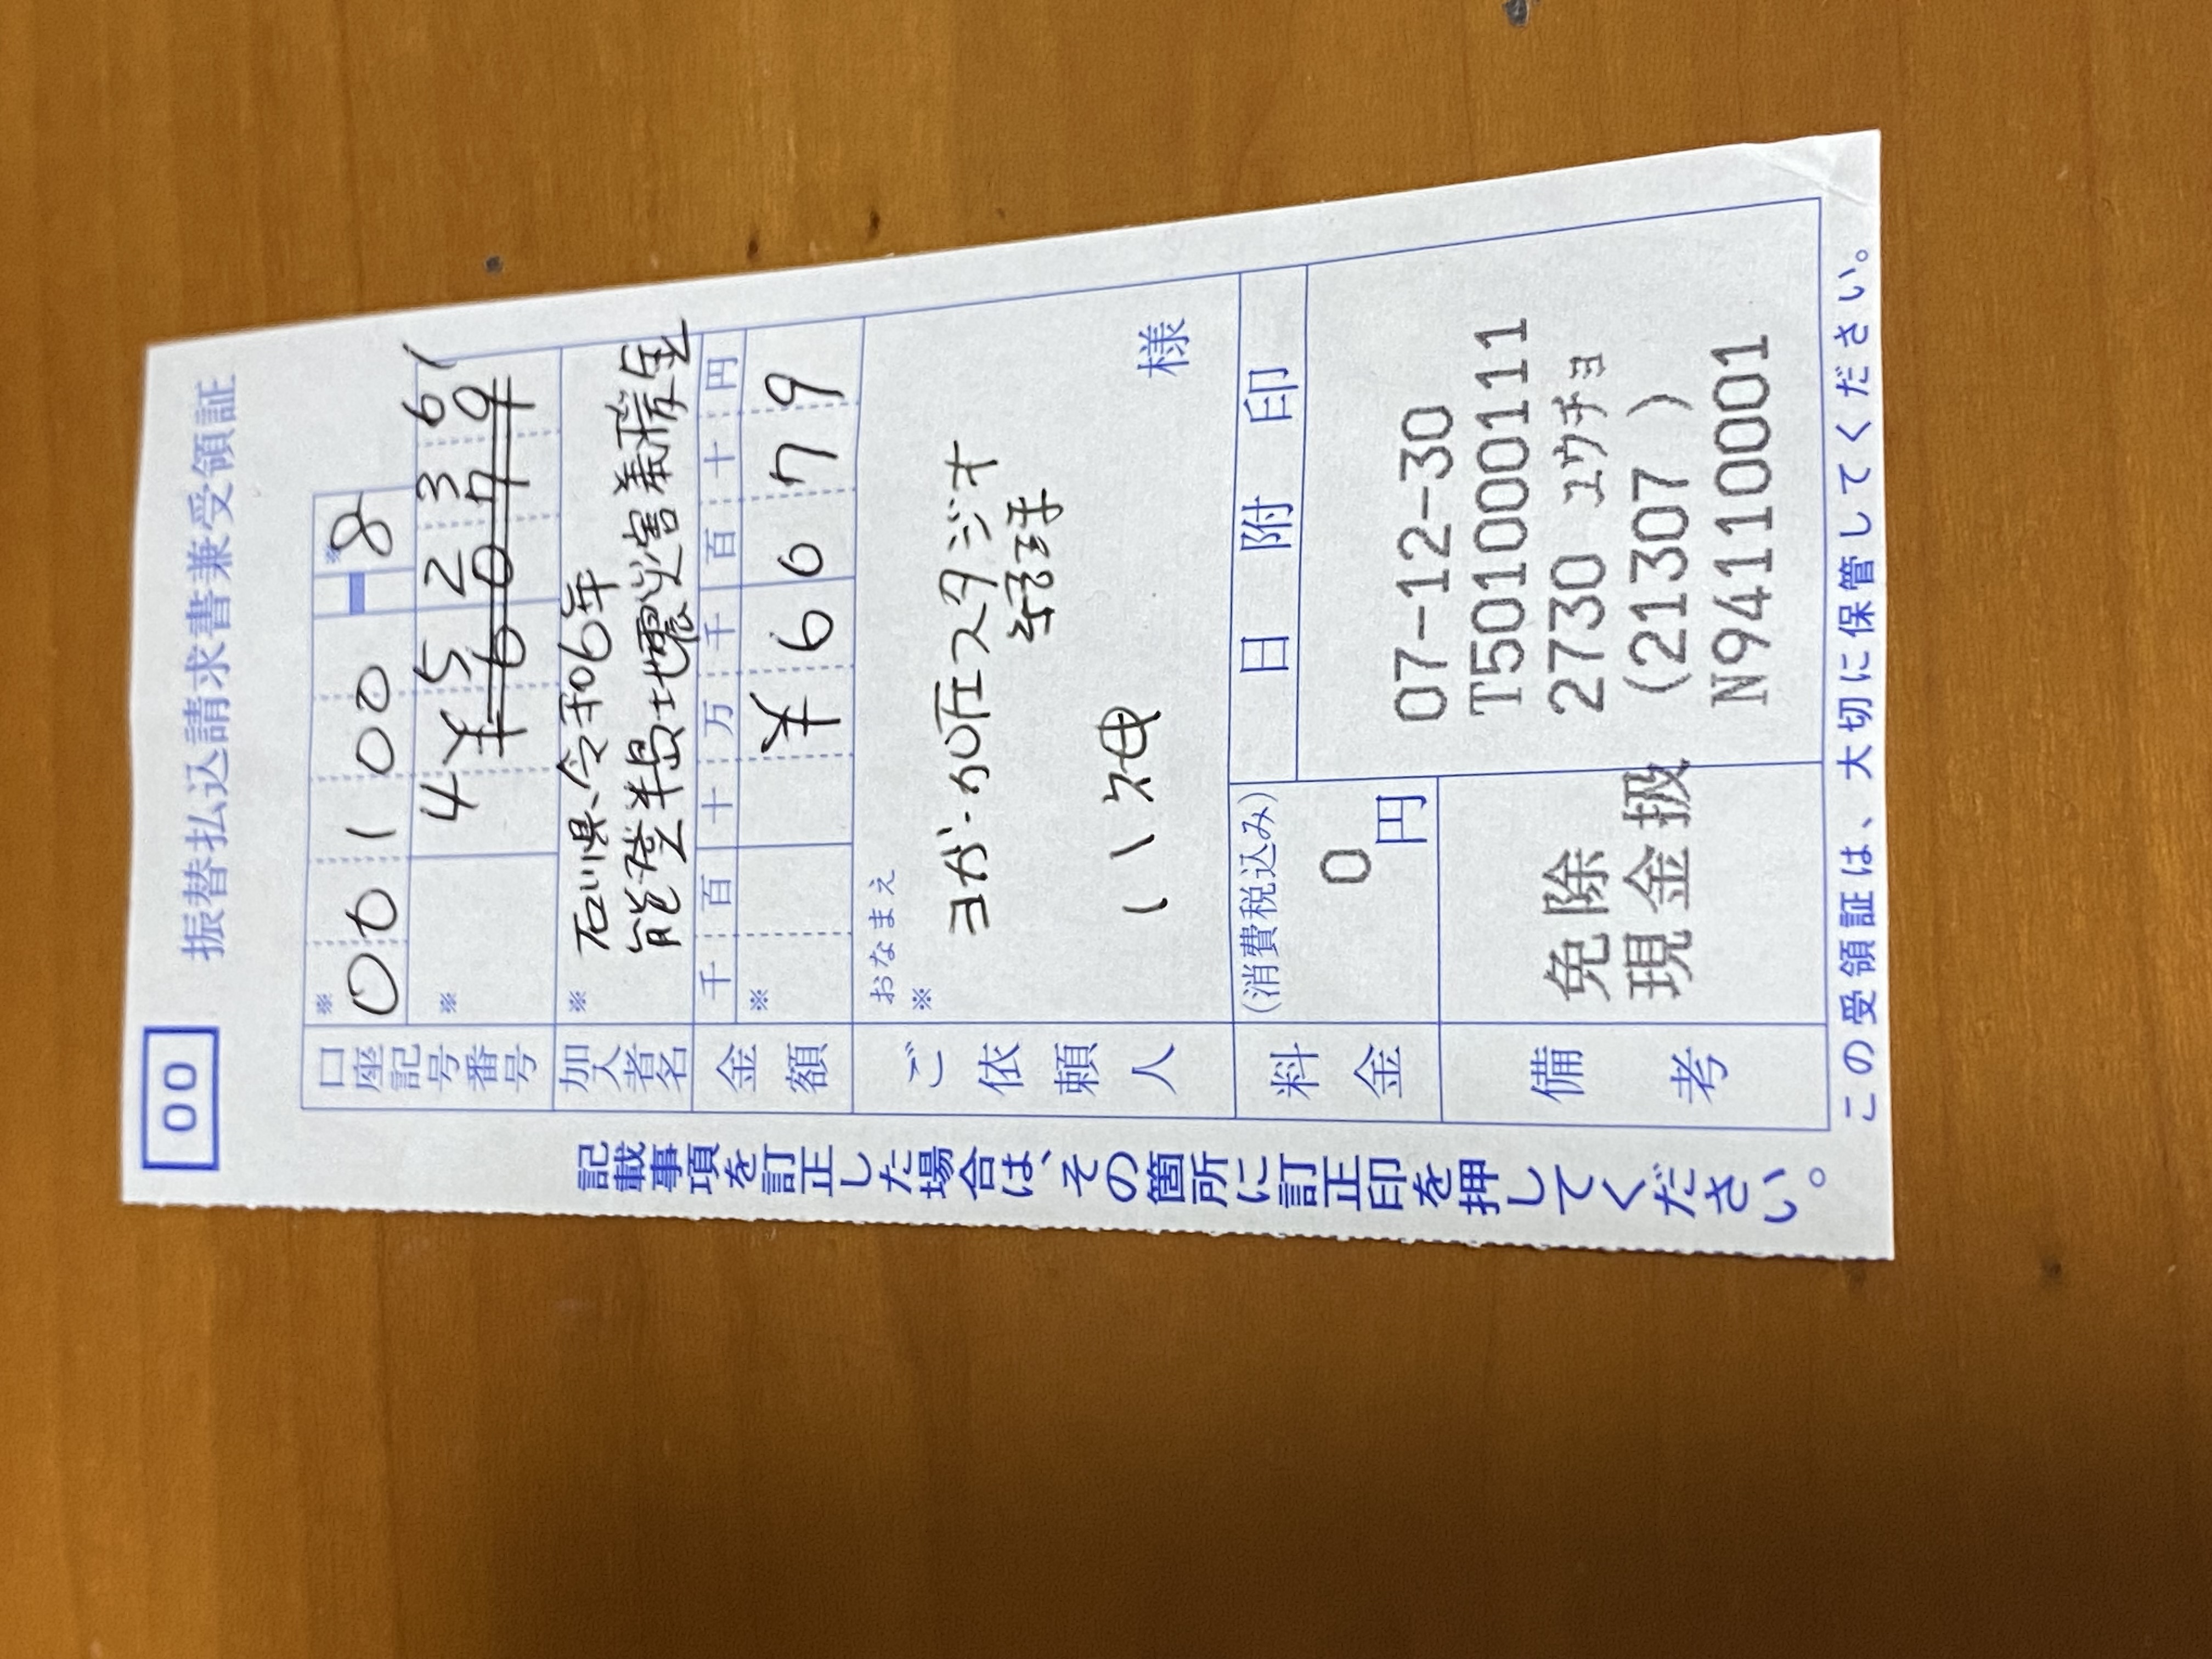 00
振替払込請求書兼受領証
口座記号番号
※
00100
※
8
※
452361
¥6079
加入者名
※
石川県令和06年
能登半島地震災害義援金
金額
千 百 十 万 千 百 十 円
※
¥6079
ご依頼人
おなまえ
※
ヨガ・カ所スタジオ
様
料金
(消費税込み)
0
円
日附印
07-12-30
T5010000111
2730 ユウチョ
(21307 )
N94110001
備考
免除
現金扱
記載事項を訂正した場合は、その箇所に訂正印を押してください。
この受領証は、大切に保管してください。